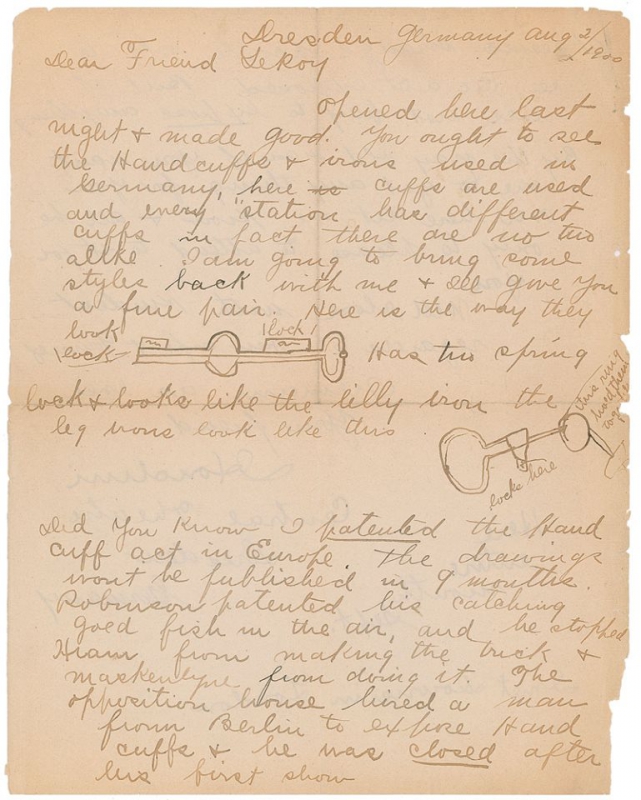 Dresden Germany Aug 2/1900
Dear Friend LeRoy
opened here last
night & made good. You ought to see
the Handcuffs & irons used in
Germany, here is cuffs are used
and every "station has different
cuffs in fact there are no two
alike. I am going to bring some
styles back with me & Ill give you
a fine pair. Here is the way they
look
lock
lock
Has two spring
lock & looks like the lilly iron the
leg irons look like this
this ring
hold them
together
locks here
Did You Know I patented the Hand
cuff act in Europe. The drawings
wont be published in 9 months.
Robinson patented his catching
goed fish in the air, and he stopped
Hiam from making the trick &
maskenlyne from doing it. The
opposition house hired a man
from Berlin to expose Hand
cuffs & he was closed after
his first show